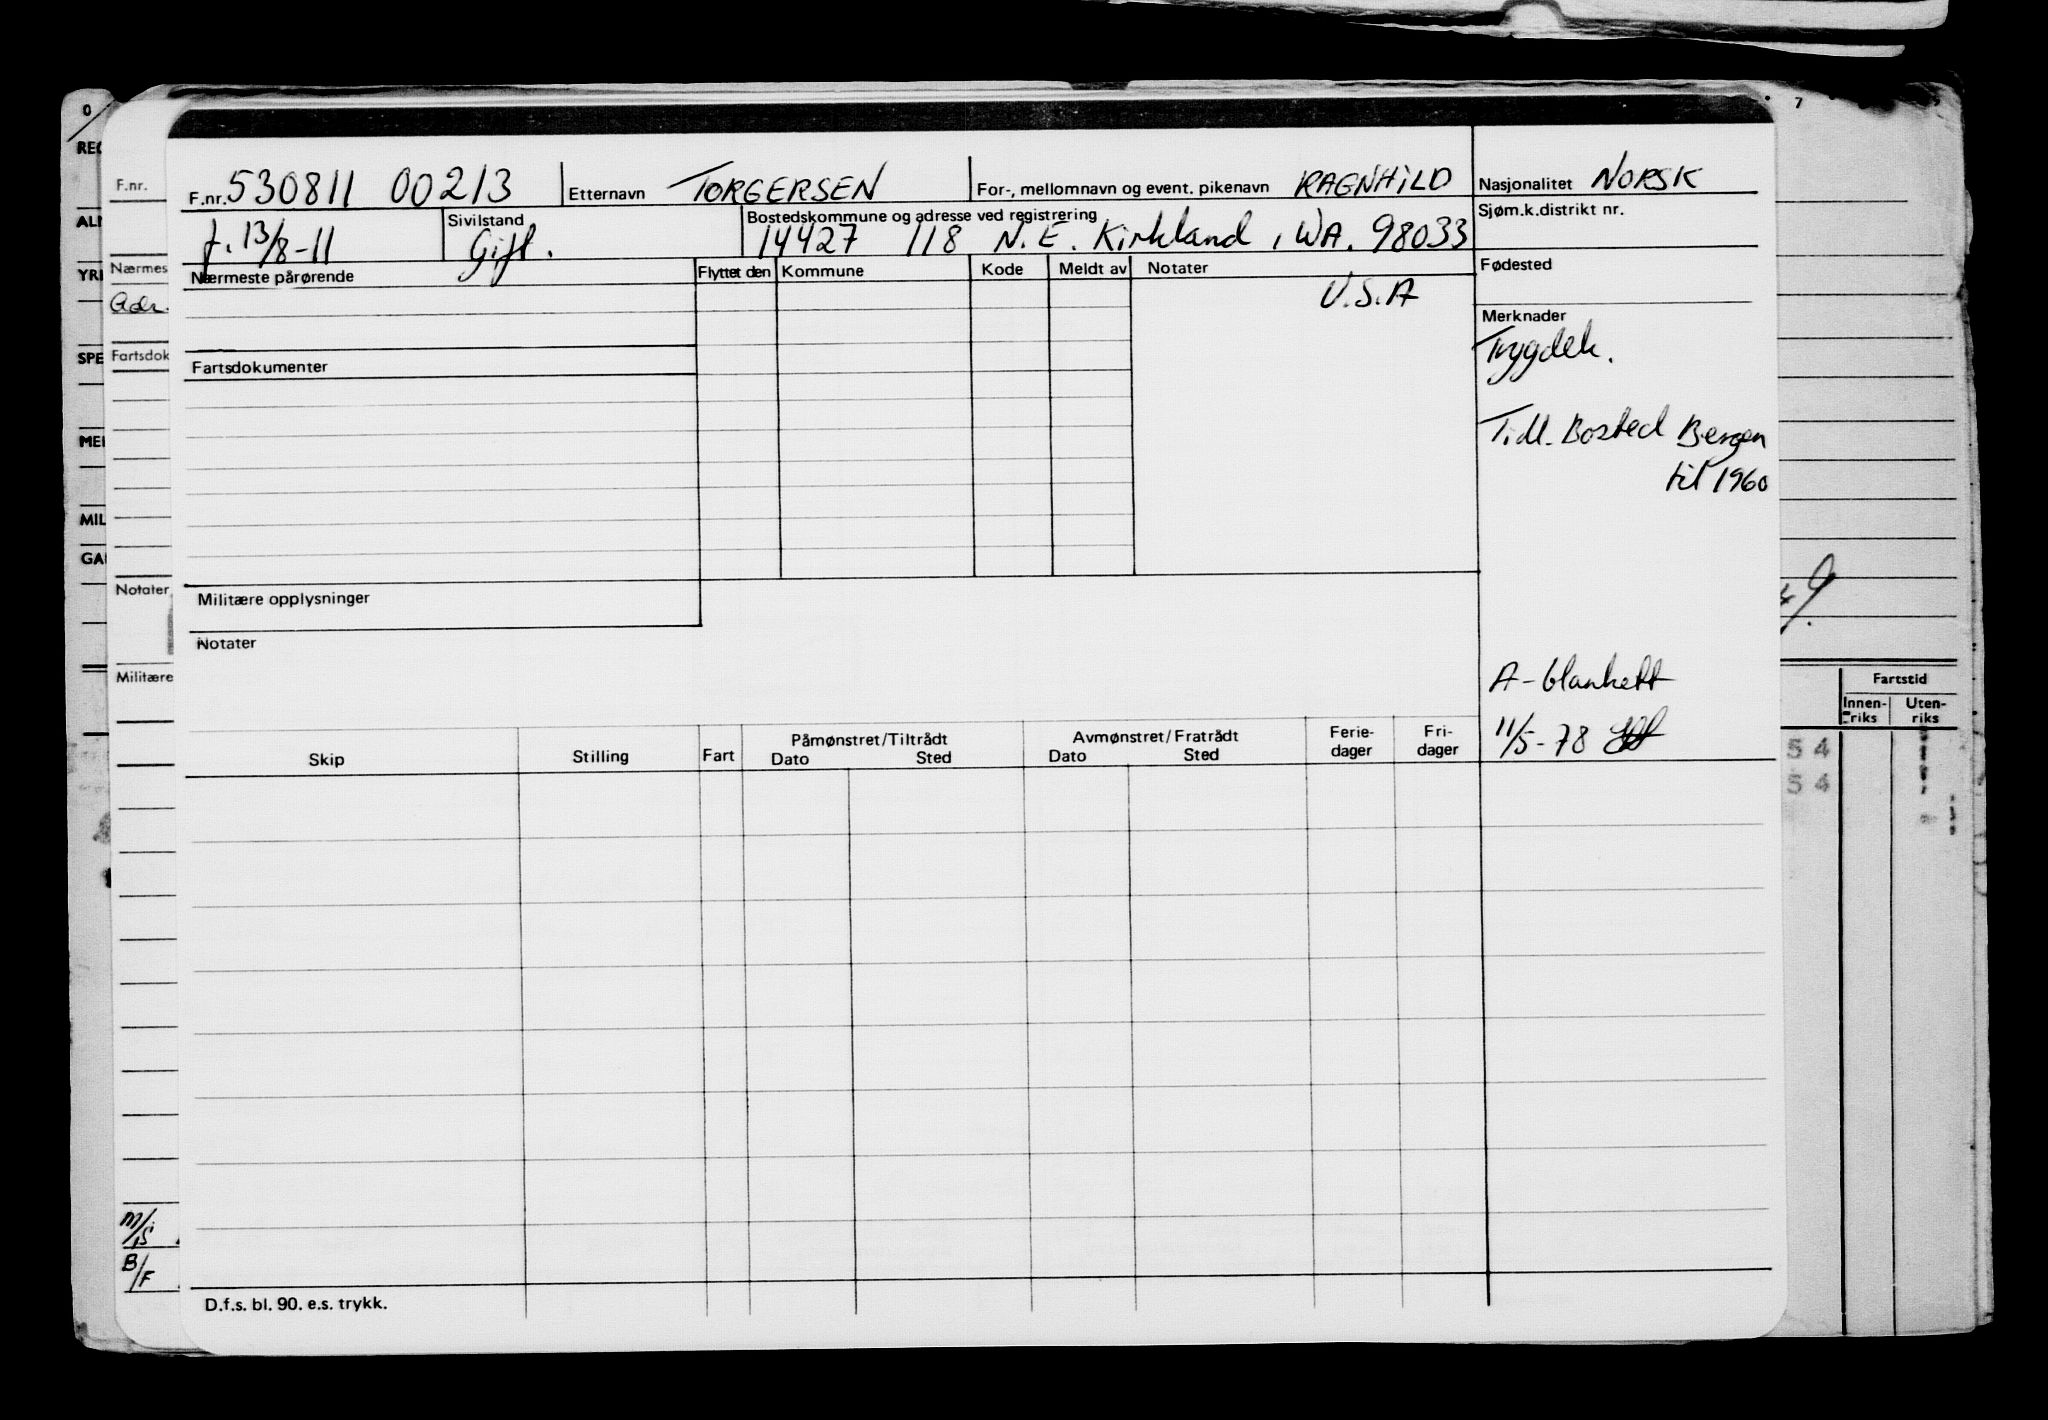 F.nr. 530811 00213 Etternavn TORGERSEN For-, mellomnavn og event. pikenavn RAGNHILD Nasjonalitet NORSK
f. 13/8-11 Sivilstand Gift. Bostedskommune og adresse ved registrering 14427 118 N.E. Kirkland, WA. 98033 Sjøm.k.distrikt nr.
Nærmeste pårørende Flyttet den Kommune Kode Meldt av Notater Fødested
U.S.A
Merknader
Trygdek.
Fartsdokumenter
Tidl. Bosted Bergen
til 1960
Militære opplysninger
Notater
A-blankett
11/5-78
Skip Stilling Fart Påmønstret/Tiltrådt Dato Sted Avmønstret/Fratrådt Dato Sted Ferie-dager Fri-dager
D.f.s. bl. 90. e.s. trykk.
0
F.nr.
Nærmes
Adr.
Fartsdok
Notater
Militære
M/S
B/F
REG
YRK
SPE
MIL
7
Fartstid
Innen-riks Uten-riks
54
54